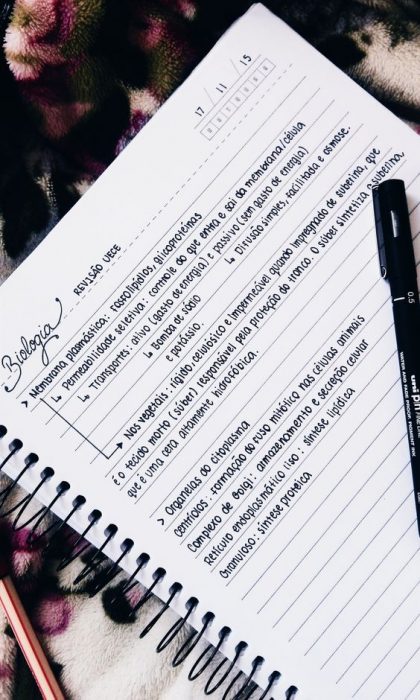 17 / 11 / 15
Biologia
REVISÃO UEFE
> Membrana plasmática: fosfolipídios, glicoproteínas
↳ Permeabilidade seletiva: controle do que entra e sai da membrana/célula
↳ Transportes: ativo (gasto de energia) e passivo (sem gasto de energia)
↳ Bomba de sódio e potássio.
↳ Difusão simples, facilitada e osmose.
→ Nos vegetais: rígido, celulósico e impermeável quando impregnado de suberina, que
é o tecido morto (súber) responsável pela proteção do tronco. O súber sintetiza a suberina,
que é uma cera altamente hidrofóbica.
> Organelas do citoplasma
Centríolos: formação do fuso mitótico nas células animais
Complexo de Golgi: armazenamento e secreção celular
Retículo endoplasmático liso: síntese lipídica
Granuloso: síntese proteica
0.5
uni pin